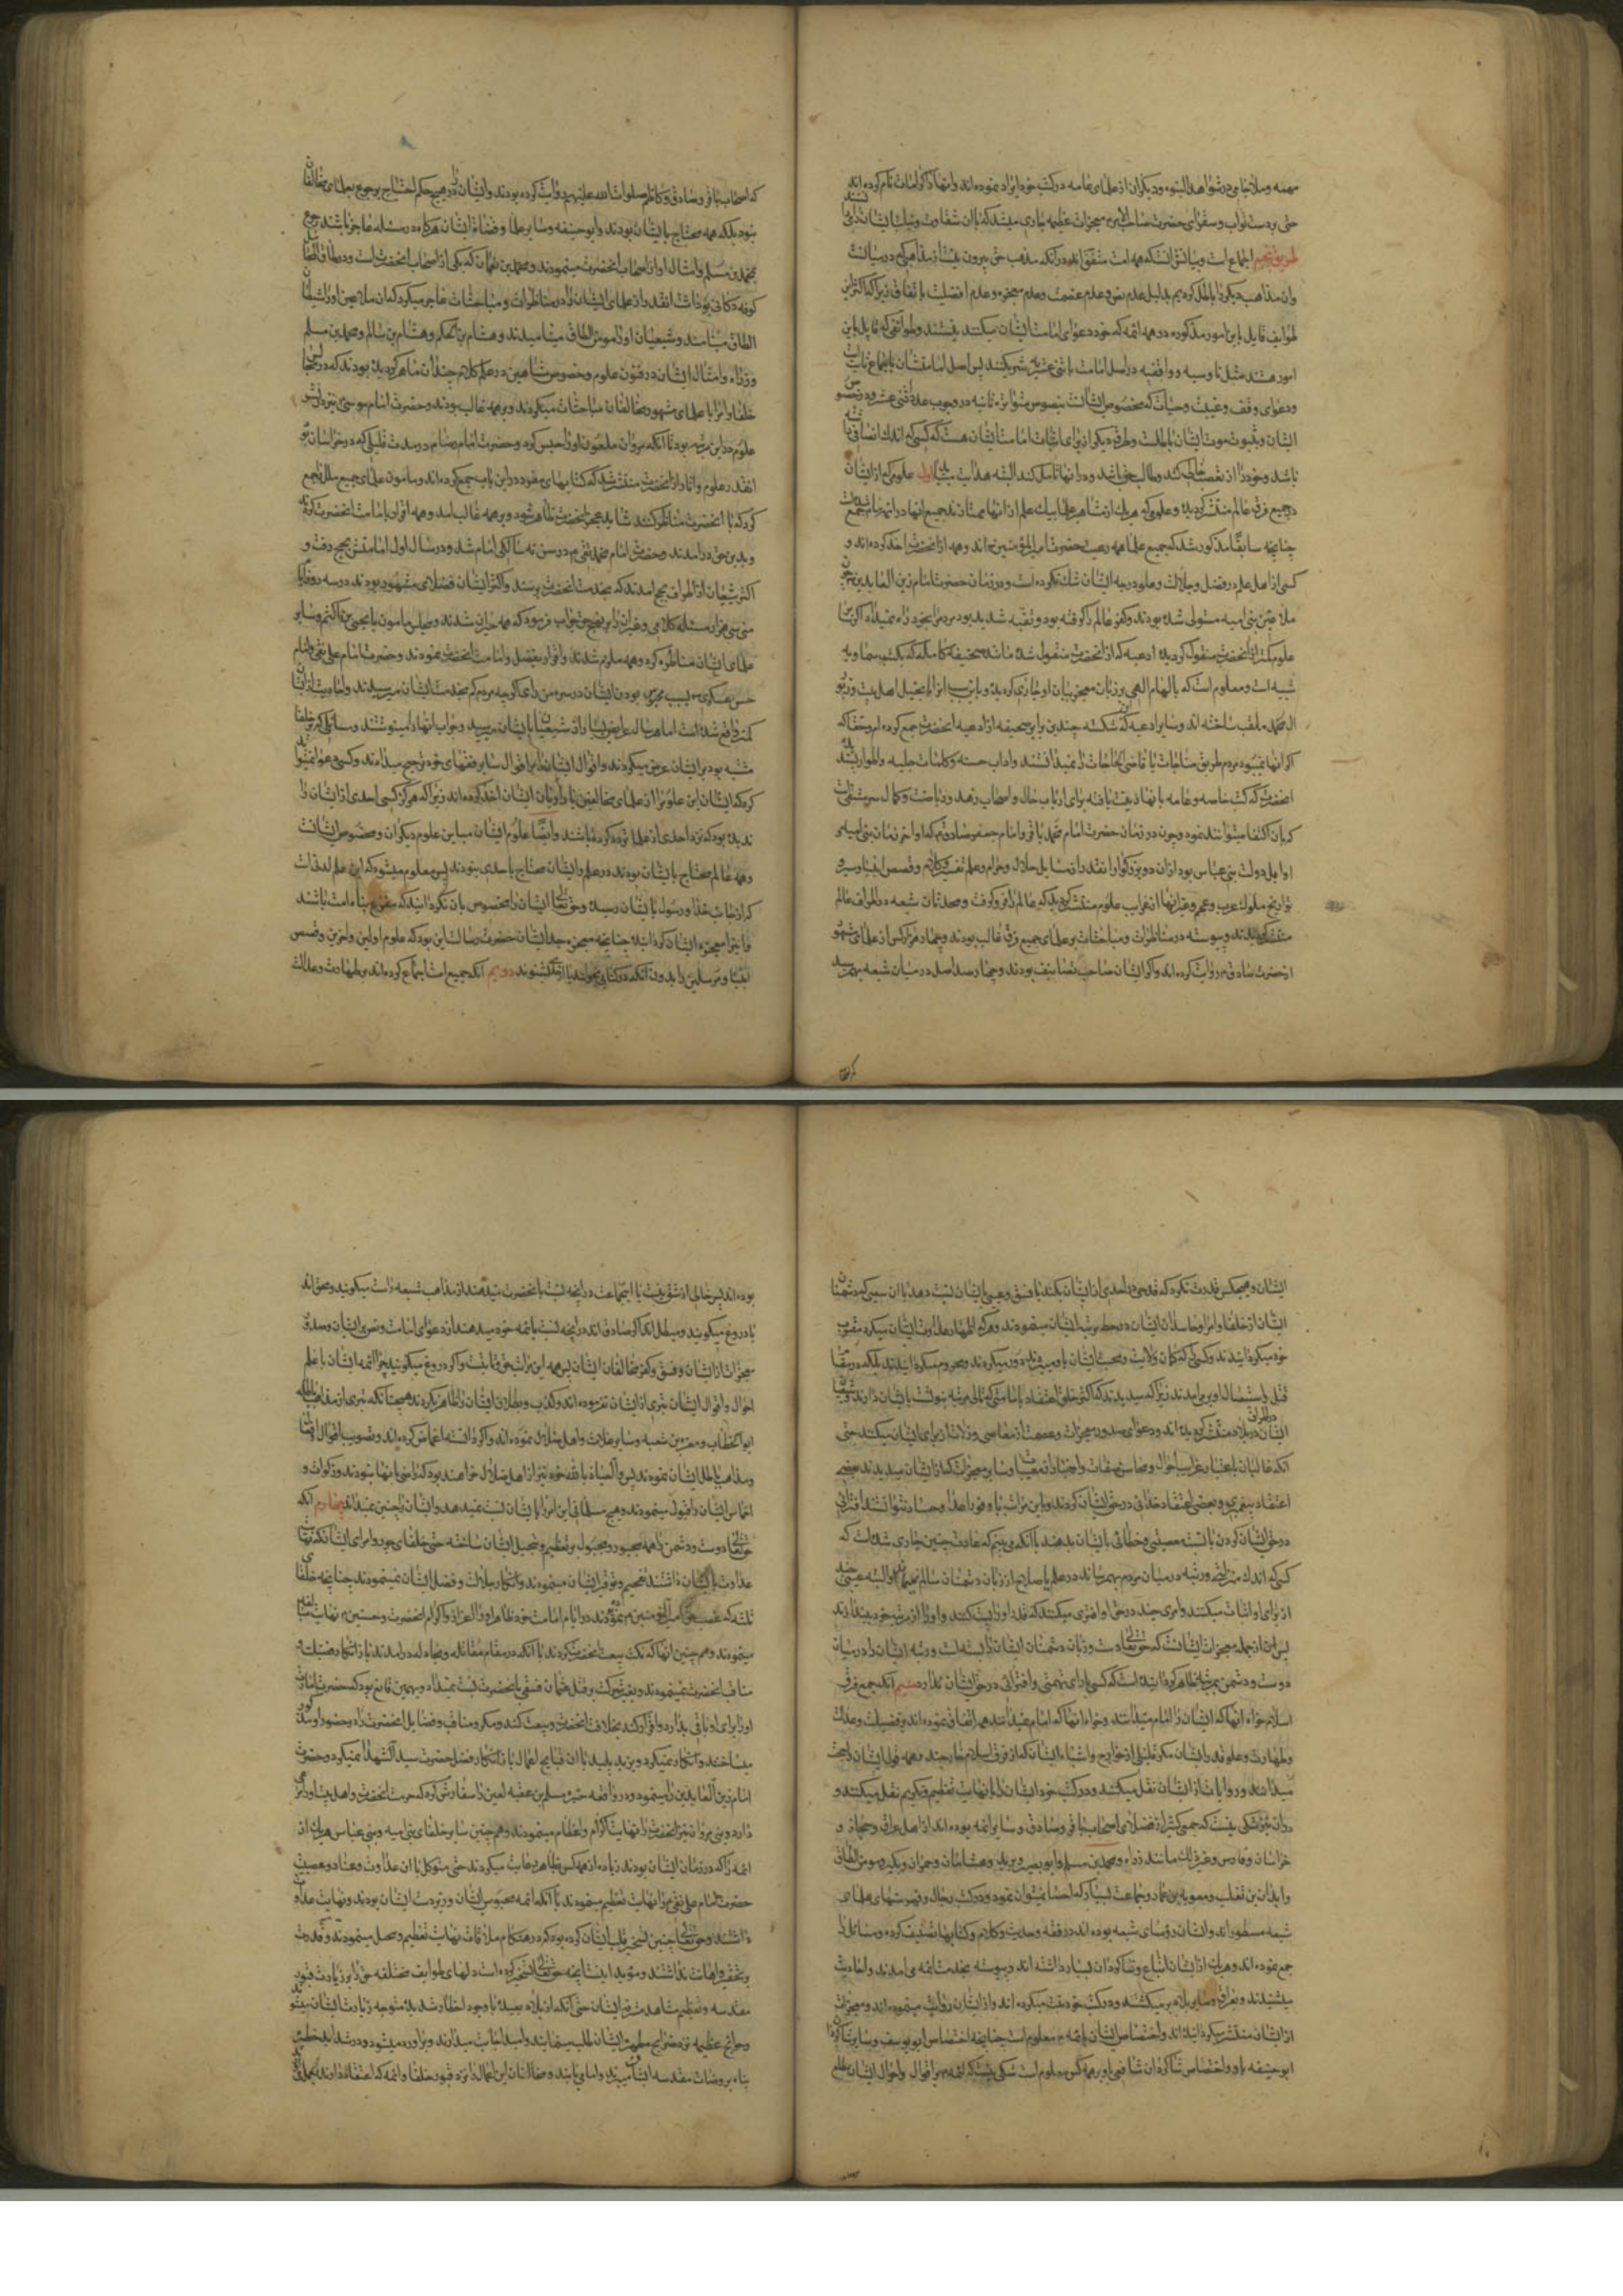 مهمه وملا جامی در شواهد النبوه ودیکران از علمای عامه در کتب خود ایراد نموده اند وانها را کرامات نام کرده اند
حتی بر دست نواب وسفرای حضرت صاحب الامر معجزات عظیمه جاری میشد که باان شقاوت
طریق پنجم اجماع است وبیانش انست که همه امت متفق اند در انکه مذهب حق بیرون نیست از مذاهبی که در میان است
وان مذاهب دیکر را باطل کردیم بدلیل عدم نص وعدم عصمت وعدم معجزه وعدم افضلیت باتفاق زیرا که اکثر این
طوایف قایل باین امور مذکوره در همه ائمه که خود دعوای امامت ایشان میکنند نیستند وطوایفی که قایل باین
امور هستند مثل ناوسیه و واقفیه در اصل امامت با اثنی عشریه شریکند پس اصل امامتشان باجماع ثابت
ودعوای وقف وغیبت وحیات که مخصوص ایشان است بنصوص متواتره ثانیه در وجوب عدد اثنی عشر
ایشان وبثبوت موت ایشان باطل است وطرق دیکر از برای اثبات امامت ایشان هست که کسی که اندک انصافی
باشد وخود را از تعصب خالی کند وطالب حق باشد ودر انها تامل کند البته هدایت میابد اول علومی که از ایشان
در جمیع فرق عالم منتشر کردیده وعلومی که هر یک از مشاهیر علما بیک علم از انها ممتازند جمیع انها در ائمه ما جمع
چنانچه سابقا مذکور شد که جمیع علما همه رعیت حضرت امیر المؤمنین اند وهمه از انحضرت اخذ کرده اند و
کسی از اهل علم در فضل وجلالت وعلو درجه ایشان شک نکرده است ودر زمان حضرت امام زین العابدین چون
ملاعین بنی امیه مستولی شده بودند وکفر عالم را کرفته بود وتقیه شدید بود مردم را بخود راه نمیداد اکرچه
علوم کمتر از انحضرت منقول کردیده ادعیه که از انحضرت منقول شده مانند صحیفه کامله که بکتب سماویه
شبیه است ومعلوم است که بالهام الهی بر زبان معجز بیان او جاری کردیده وباین سبب انرا انجیل اهل بیت وزبور
ال محمد ملقب ساخته اند وسایر ادعیه که شکسته چندین برابر صحیفه از ادعیه انحضرت جمع کرده ام وحقا که
اکر انها نمیبود مردم طریق مناجات با قاضی الحاجات را نمیدانستند واداب حسنه وکلمات جلیه واطوار پسندیده
انحضرت که کتب خاصه وعامه بانها زینت یافته برای ارباب حال واصحاب زهد وریاضت وکمال سرمشقی است
که بان اکتفا میتوانند نمود وچون در زمان حضرت امام محمد باقر وامام جعفر صادق که اواخر زمان بنی امیه و
اوایل دولت بنی عباس بود از ان دو بزرکوار انقدر از مسایل حلال وحرام وعلم تفسیر وکلام وقصص انبیا وسیر و
تواریخ ملوک عرب وعجم وغیر انها از غرایب علوم منتشر کردید که عالم را فرو کرفت ومحدثان شیعه در اطراف عالم
منتشر شدند وپیوسته در مناظرات ومباحثات بر علمای جمیع فرق غالب بودند وچهار هزار کس از علمای مشهور
از حضرت صادق م روایت کرده اند واکثر ایشان صاحب تصانیف بودند وچهار صد اصل در میان شیعه بهم رسید
که اصحاب باقر وصادق وکاظم صلوات الله علیهم روایت کرده بودند وایشان را در هیچ حکم احتیاج برجوع بعلمای مخالفان
نبود بلکه همه محتاج بایشان بودند وابو حنیفه وسایر علما وقضاة ایشان هرکاه در مسئله عاجز میشدند رجوع
بمحمد بن مسلم وامثال او از اصحاب انحضرت مینمودند ومحمد بن نعمان که یکی از اصحاب انحضرت است ودر طاق المحامل
کوفه دکانی بود داشت انقدر از علمای ایشان را در مناظرات ومباحثات عاجز میکرد که ان ملاعین او را شیطان
الطاق مینامیدند وشیعیان او را مومن الطاق مینامیدند وهشام بن الحکم وهشام بن سالم ومحمد بن مسلم
وزراره وامثال ایشان در فنون علوم وخصوص در علم کلام چندان ماهر کردیده بودند که در مجالس
خلفا وامرا با علمای مشهور مخالفان مباحثات میکردند وبر همه غالب بودند وحضرت امام موسی نیز در نشر
علوم در این مرتبه بود تا انکه هرون ملعون او را حبس کرد وحضرت امام رضا م در مدت قلیلی که در خراسان بود
انقدر علوم واثار از انحضرت منتشر شد که کتابهای مفرده در این باب جمع کرده اند ومامون علمای جمیع ملل را جمع
کرد که با انحضرت مناظره کنند شاید عجز انحضرت ظاهر شود وبر همه غالب امد وهمه اقرار بامامت انحضرت کردند
وبدین حق در امدند وحضرت امام محمد تقی م در سن نه سالکی امام شد ودر سال اول امامتش بحج رفت و
اکثر شیعیان از اطراف بحج امدند که بخدمت انحضرت برسند واکثر ایشان فضلای مشهور بودند در سه روز
سی هزار مسئله کلامی وغیر ان را بر نهج حق جواب فرمود که همه حیران شدند ودر مجلس مامون با یحیی بن اکثم وسایر
علمای ایشان مناظره کرد وهمه ملزم شدند واقرار بفضل وامامت انحضرت نمودند وحضرت امام علی نقی وامام
حسن عسکری م بسبب محبوس بودن ایشان در سر من رای اکرچه مردم کم بخدمت ایشان میرسیدند واحادیث از ایشان
کمتر واقع شده است اما هر سال عرایض بسیار از شیعیان بایشان میرسید وجواب انها را مینوشتند ومسائلی که بر خلفا
مشتبه بود بر ایشان عرض میکردند واقوال ایشان را بر اقوال سایر فقهای خود ترجیح میدادند وکسی دعوا نمیتواند
کرد که ایشان این علوم را از علمای مخالفین یا راویان ایشان اخذ کرده اند زیرا که هرکز کسی احدی از ایشان را
ندیده بود که نزد احدی از علما تردد کرده باشند وایضا علوم ایشان مباین علوم دیکران ومخصوص ایشان است
وهمه عالم محتاج بایشان بودند در علم وایشان محتاج باحدی نبودند پس معلوم میشود که این علم لدنی است
که از جانب خدا ورسول بایشان رسیده وحق تعالی ایشان را مخصوص بان کردانیده که مفزع وپناه امت باشند
وانرا معجزه ایشان کردانیده چنانچه معجزه جد ایشان حضرت رسالت این بود که علوم اولین واخرین وقصص
انبیا ومرسلین را بدون انکه در کتابی بخواند یا از کسی بشنوند دویم انکه جمیع امت اجماع کرده اند بر طهارت وعدالت
ایشان وهیچکس قدرت نکرد که قدحی در احدی از ایشان بکند یا فسق وعیبی بایشان نسبت دهد باان سعیی که دشمنان
ایشان از خلفا وامرا وحاسدان ایشان در حط مرتبه ایشان مینمودند وهر که اظهار عداوت ایشان میکرد مقرب
خود میکردانیدند وکسی را که کمان ولایت ومحبت ایشان باو میبردند دور میکردند ومحروم میکردانیدند بلکه در مقام
قتل واستیصال او بر می امدند زیرا که میدیدند که اکثر خلق اعتقاد بامامتی که تالی مرتبه نبوت است بایشان دارند وشیعیان
ایشان در اطراف بلاد منتشر کردیده اند ودعوای صدور معجزات وعصمت از معاصی وزلات از برای ایشان میکنند حتی
انکه غالیان باعتبار غرایب احوال ومحاسن صفات واخبار از مغیبات وسایر معجزات که از ایشان میدیدند بعضی
اعتقاد پیغمبری وبعضی اعتقاد خدائی در حق ایشان کردند وباین مراتب با وفور اعدا وحساد نتوانستند افترائی
در حق ایشان کردن یا نسبت معصیتی وخطائی بایشان بدهند باانکه می بینیم که عادت چنین جاری شده است که
کسی که اندک منزلتی ورتبه در میان مردم بهم رساند در علم یا صلاح از زبان دشمنان سالم نمیماند والبته عیبی چند
از برای او اثبات میکنند وامری چند در حق او افترا میکنند که قدر او را پست کنند واو را از مرتبه خود بیندازند
پس این از جمله معجزات ایشان است که حق تعالی دست وزبان دشمنان ایشان را بسته است ورتبه ایشان را در میان
دوست ودشمن بمرتبه ظاهر کردانیده است که کسی یارای تهمتی وافترائی در حق ایشان ندارد سیم انکه جمیع فرق
اسلام خواه انها که ایشان را امام میدانند وخواه انها که امام نمیدانند همه اتفاق نموده اند بر فضیلت وعدالت
وطهارت وعلو قدر ایشان مکر قلیلی از خوارج واشباه ایشان که از فرق اسلام خارجند وهمه قول ایشان را حجت
میدانند وروایات از ایشان نقل میکنند ودر کتب خود ایشان را بانهایت تعظیم وتکریم نقل میکنند و
در ان نیز شکی نیست که جمعی کثیر از فضلای اصحاب باقر وصادق وسایر ائمه بوده اند از اهل عراق وحجاز و
خراسان وفارس وغیر ذلک مانند زراره ومحمد بن مسلم وابو بصیر وبرید وهشامان وحمران وبکیر ومومن الطاق
وابان بن تغلب ومعویه بن عمار وجماعت بسیار که احصا نمیتوان نمود ودر کتب رجال وفهرستهای علمای
شیعه مسطور اند وایشان رؤسای شیعه بوده اند در فقه وحدیث وکلام وکتابها تصنیف کرده ومسائل را
جمع نموده اند وهر یک از ایشان اتباع وشاکردان بسیار داشته اند وپیوسته بخدمت ائمه می امدند واحادیث
میشنیدند وبعراق وسایر بلاد بر میکشتند ودر کتب خود ثبت میکرده اند واز ایشان روایت مینموده اند ومعجزات
از ایشان منتشر میکردانیده اند واختصاص ایشان بائمه م معلوم است چنانچه اختصاص ابو یوسف وسایر شاکردان
ابو حنیفه باو واختصاص شاکردان شافعی باو بر همه کس معلوم است شکی نیست که ائمه م بر اقوال واحوال ایشان مطلع
بوده اند پس خالی از دو شق نیست یا این جماعت در انچه نسبت بانحضرت میدهند از مذاهب شیعه راست میکویند ومحق اند
یا دروغ میکویند ومبطل اند اکر صادق اند در انچه نسبت بائمه خود میدهند از دعوای امامت ونص بر ایشان وصدور
معجزات از ایشان وفسق وکفر مخالفان ایشان پس همه این مراتب حق ثابت واکر دروغ میکویند چرا ائمه ایشان با علم
احوال واقوال ایشان تبری از ایشان نفرموده اند وکذب وبطلان ایشان را ظاهر نکردند همچنانکه تبری از مذاهب باطله
ابو الخطاب ومغیره بن شعبه وسایر غلات واهل ضلال نموده اند واکر دانسته اغماض کرده اند وتصویب اقوال
ومذاهب باطل ایشان نموده اند پس العیاذ بالله خود نیز از اهل ضلال خواهند بود که راضی بانها بودند وزکوات و
اخماس ایشان را قبول مینمودند وهیچ مسلمانی این امر را بایشان نسبت نمیدهد وایشان را چنین نمیداند چهارم انکه
حق تعالی دوست ودشمن را همه مجبور ومجبول بر تعظیم وتبجیل ایشان ساخته حتی خلفای جور وامرای ایشان که نهایت
عداوت با ایشان داشتند تفخیم وتوقیر ایشان مینمودند وانکار جلالت وفضل ایشان نمینمودند چنانچه خلفا
ثلثه که غصب حق امیر المومنین م نمودند در ایام امامت خود ظاهرا در اعزاز واکرام انحضرت وحسنین م نهایت مبالغه
مینمودند وهم چنین انها که نکث بیعت انحضرت کردند باانکه در مقام مقاتله ومجادله در امدند باز انکار فضیلت و
مناقب انحضرت نمینمودند وبغیر شرکت در قتل عثمان فسقی بانحضرت نسبت نمیداد وبهمین قانع بود که حضرت امارت
او را برای او باقی بدارد واقرار کند بخلافت انحضرت وبیعت کند ومکرر مناقب وفضایل انحضرت را در حضور او مذکور
میساختند وانکار نمیکرد ویزید پلید باان قبایح اعمال باز انکار فضل حضرت سید الشهدا نمیکرد وحضرت
امام زین العابدین را مینمود ودر واقعه حره مسلم بن عقبه لعین را سفارش کرد که حرمت انحضرت واهل بیت او
دارد وبنی مروان نیز انحضرت را نهایت اکرام واعظام مینمودند وهم چنین سایر خلفای بنی امیه وبنی عباس هر یک از
ائمه را که در زمان ایشان بودند زیاده از همه کس ظاهرا رعایت میکردند حتی متوکل باان عداوت وعناد وعصبیت
حضرت امام علی نقی م را نهایت تعظیم مینمودند باانکه ائمه محبوس ایشان وزیردست ایشان بودند ونهایت عداوت
داشتند وحق تعالی چنین تسخیر قلب ایشان کرده بود که در هنکام ملاقات نهایت تعظیم وتجمیل مینمودند وقدرت
بر تحقیر واهانت نداشتند ومؤید اینست انچه حق تعالی تسخیر کرده است دلهای طوایف مختلفه خلق را بر زیارت قبور
مقدسه وتعظیم مشاهد مشرفه ایشان حتی انکه از بلاد بعیده با وجود اخطار شدیده متوجه زیارت ایشان میشوند
وحوائج عظیمه نزد ضرایح مطهره ایشان طلب مینمایند وامید اجابت میدارند وبر اورده میشود ودر شداید عظیم
پناه بروضات مقدسه ایشان میبرند وامان می یابند ومخالفان این اعمال را نزد قبور خلفا وائمه که اعتقاد دارند نمیکنند